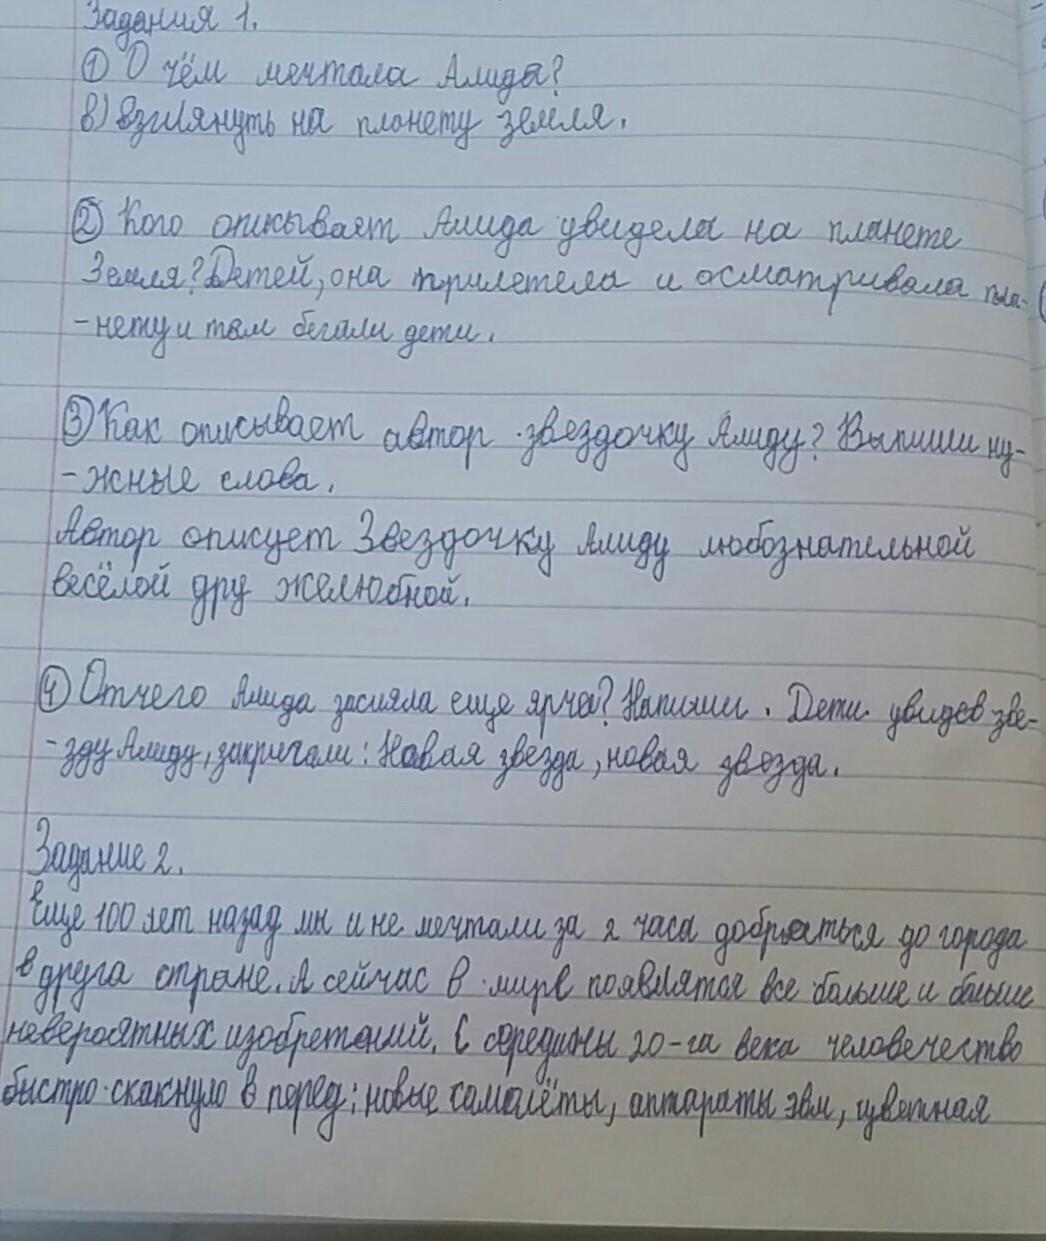 Задания 1.
① О чём мечтала Алида?
в) Взглянуть на планету земля.
② Кого описывает Алида увидела на планете
Земля? Детей, она прилетела и осматривала пла-
-нету и там бегали дети.
③ Как описывает автор звездочку Алиду? Выпиши ну-
-жные слова.
Автор описует Звездочку Алиду любознательной
весёлой дру желюбной.
④ Отчего Алида засияла еще ярче? Напиши. Дети увидев зве-
-зду Алиду, закричали: Новая звезда, новая звезда.
Задание 2.
Еще 100 лет назад мы и не мечтали за 2 часа добраться до города
в друга стране. А сейчас в мире появлятся все больше и больше
невероятных изобретений. С середины 20-га века человечество
быстро скакнуло в перед: новые самолёты, аппараты эвм, цветная